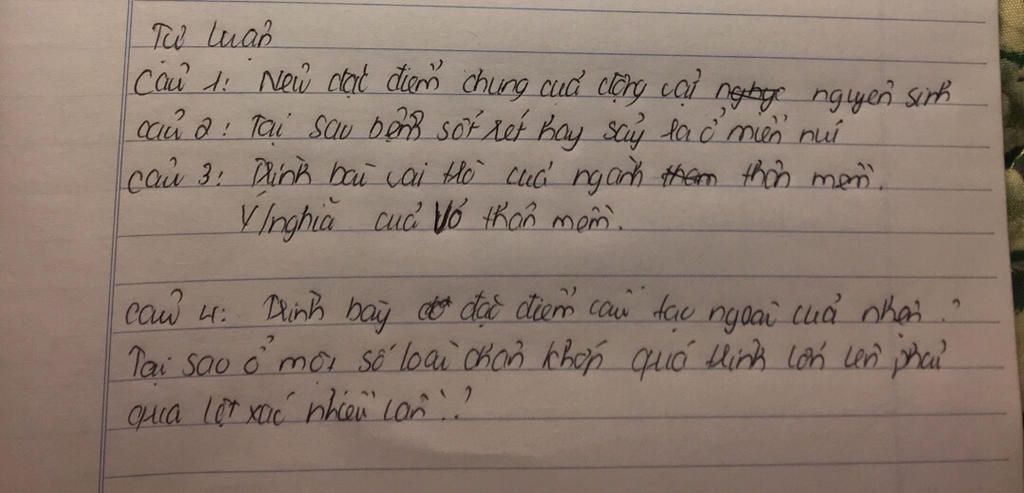 Tự luận
Câu 1: Nêu đặt điểm chung cuả động vật nguyên sinh
câu 2: Tại sao bệnh sốt rét hay sảy ra ở miền núi
câu 3: Trình baì vai trò cuả ngành thân mềm.
Ý/nghĩa cuả vỏ thân mềm.
câu 4: Trình bày đặc điểm cấu tạo ngoaì cuả nhện?
Tại sao ở một số loaì chân khớp quá trình lớn lên phaỉ
qua lột xác nhiều lần?